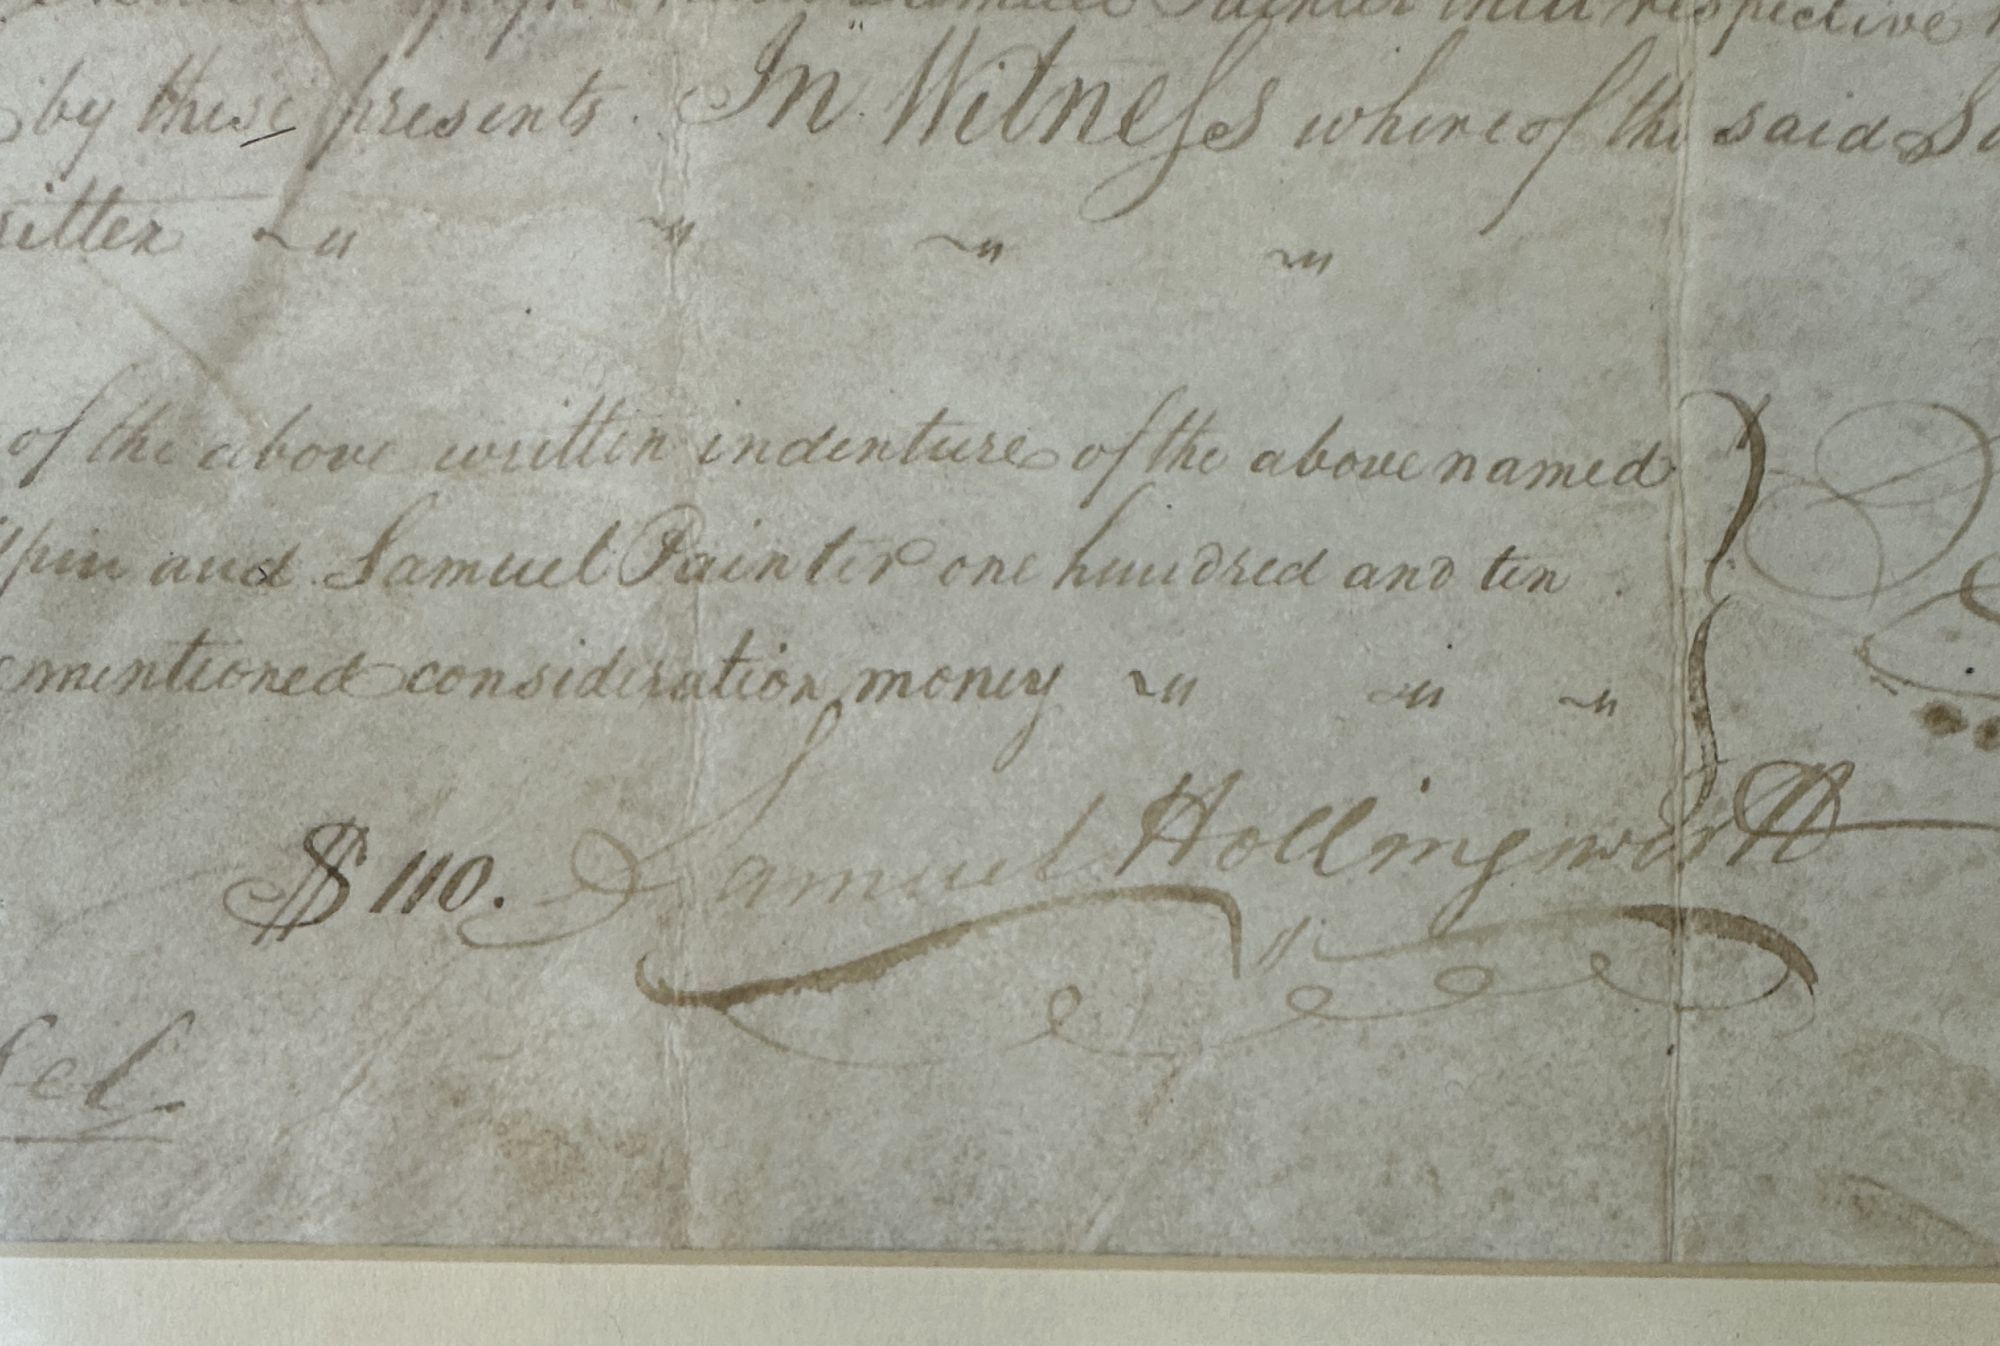 Samuel Painter their respective
by these presents. In Witness whereof the said
ritten
of the above written indenture of the above named
lpin and Samuel Painter one hundred and ten
mentioned consideration money
$110. Samuel Hollingsworth